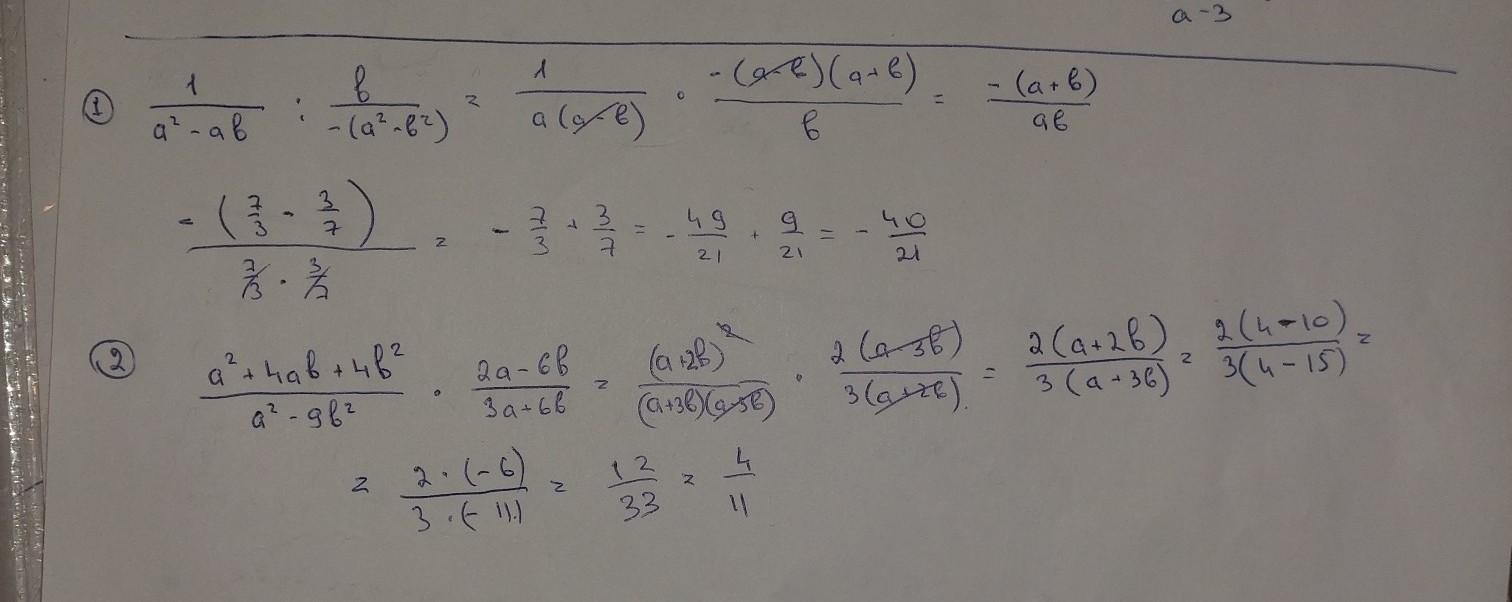 a-3
① 1/(a² - ab) : b/(-(a² - b²)) = 1/(a(a-b)) · (-(a-b)(a+b))/b = (-(a+b))/(ab)
(-(7/3 - 3/7))/(7/3 · 3/7) = - 7/3 + 3/7 = - 49/21 + 9/21 = - 40/21
② (a² + 4ab + 4b²)/(a² - 9b²) · (2a - 6b)/(3a + 6b) = (a+2b)²/((a+3b)(a-3b)) · (2(a-3b))/(3(a+2b)) = (2(a+2b))/(3(a+3b)) = (2(4-10))/(3(4-15)) =
= (2·(-6))/(3·(-11)) = 12/33 = 4/11